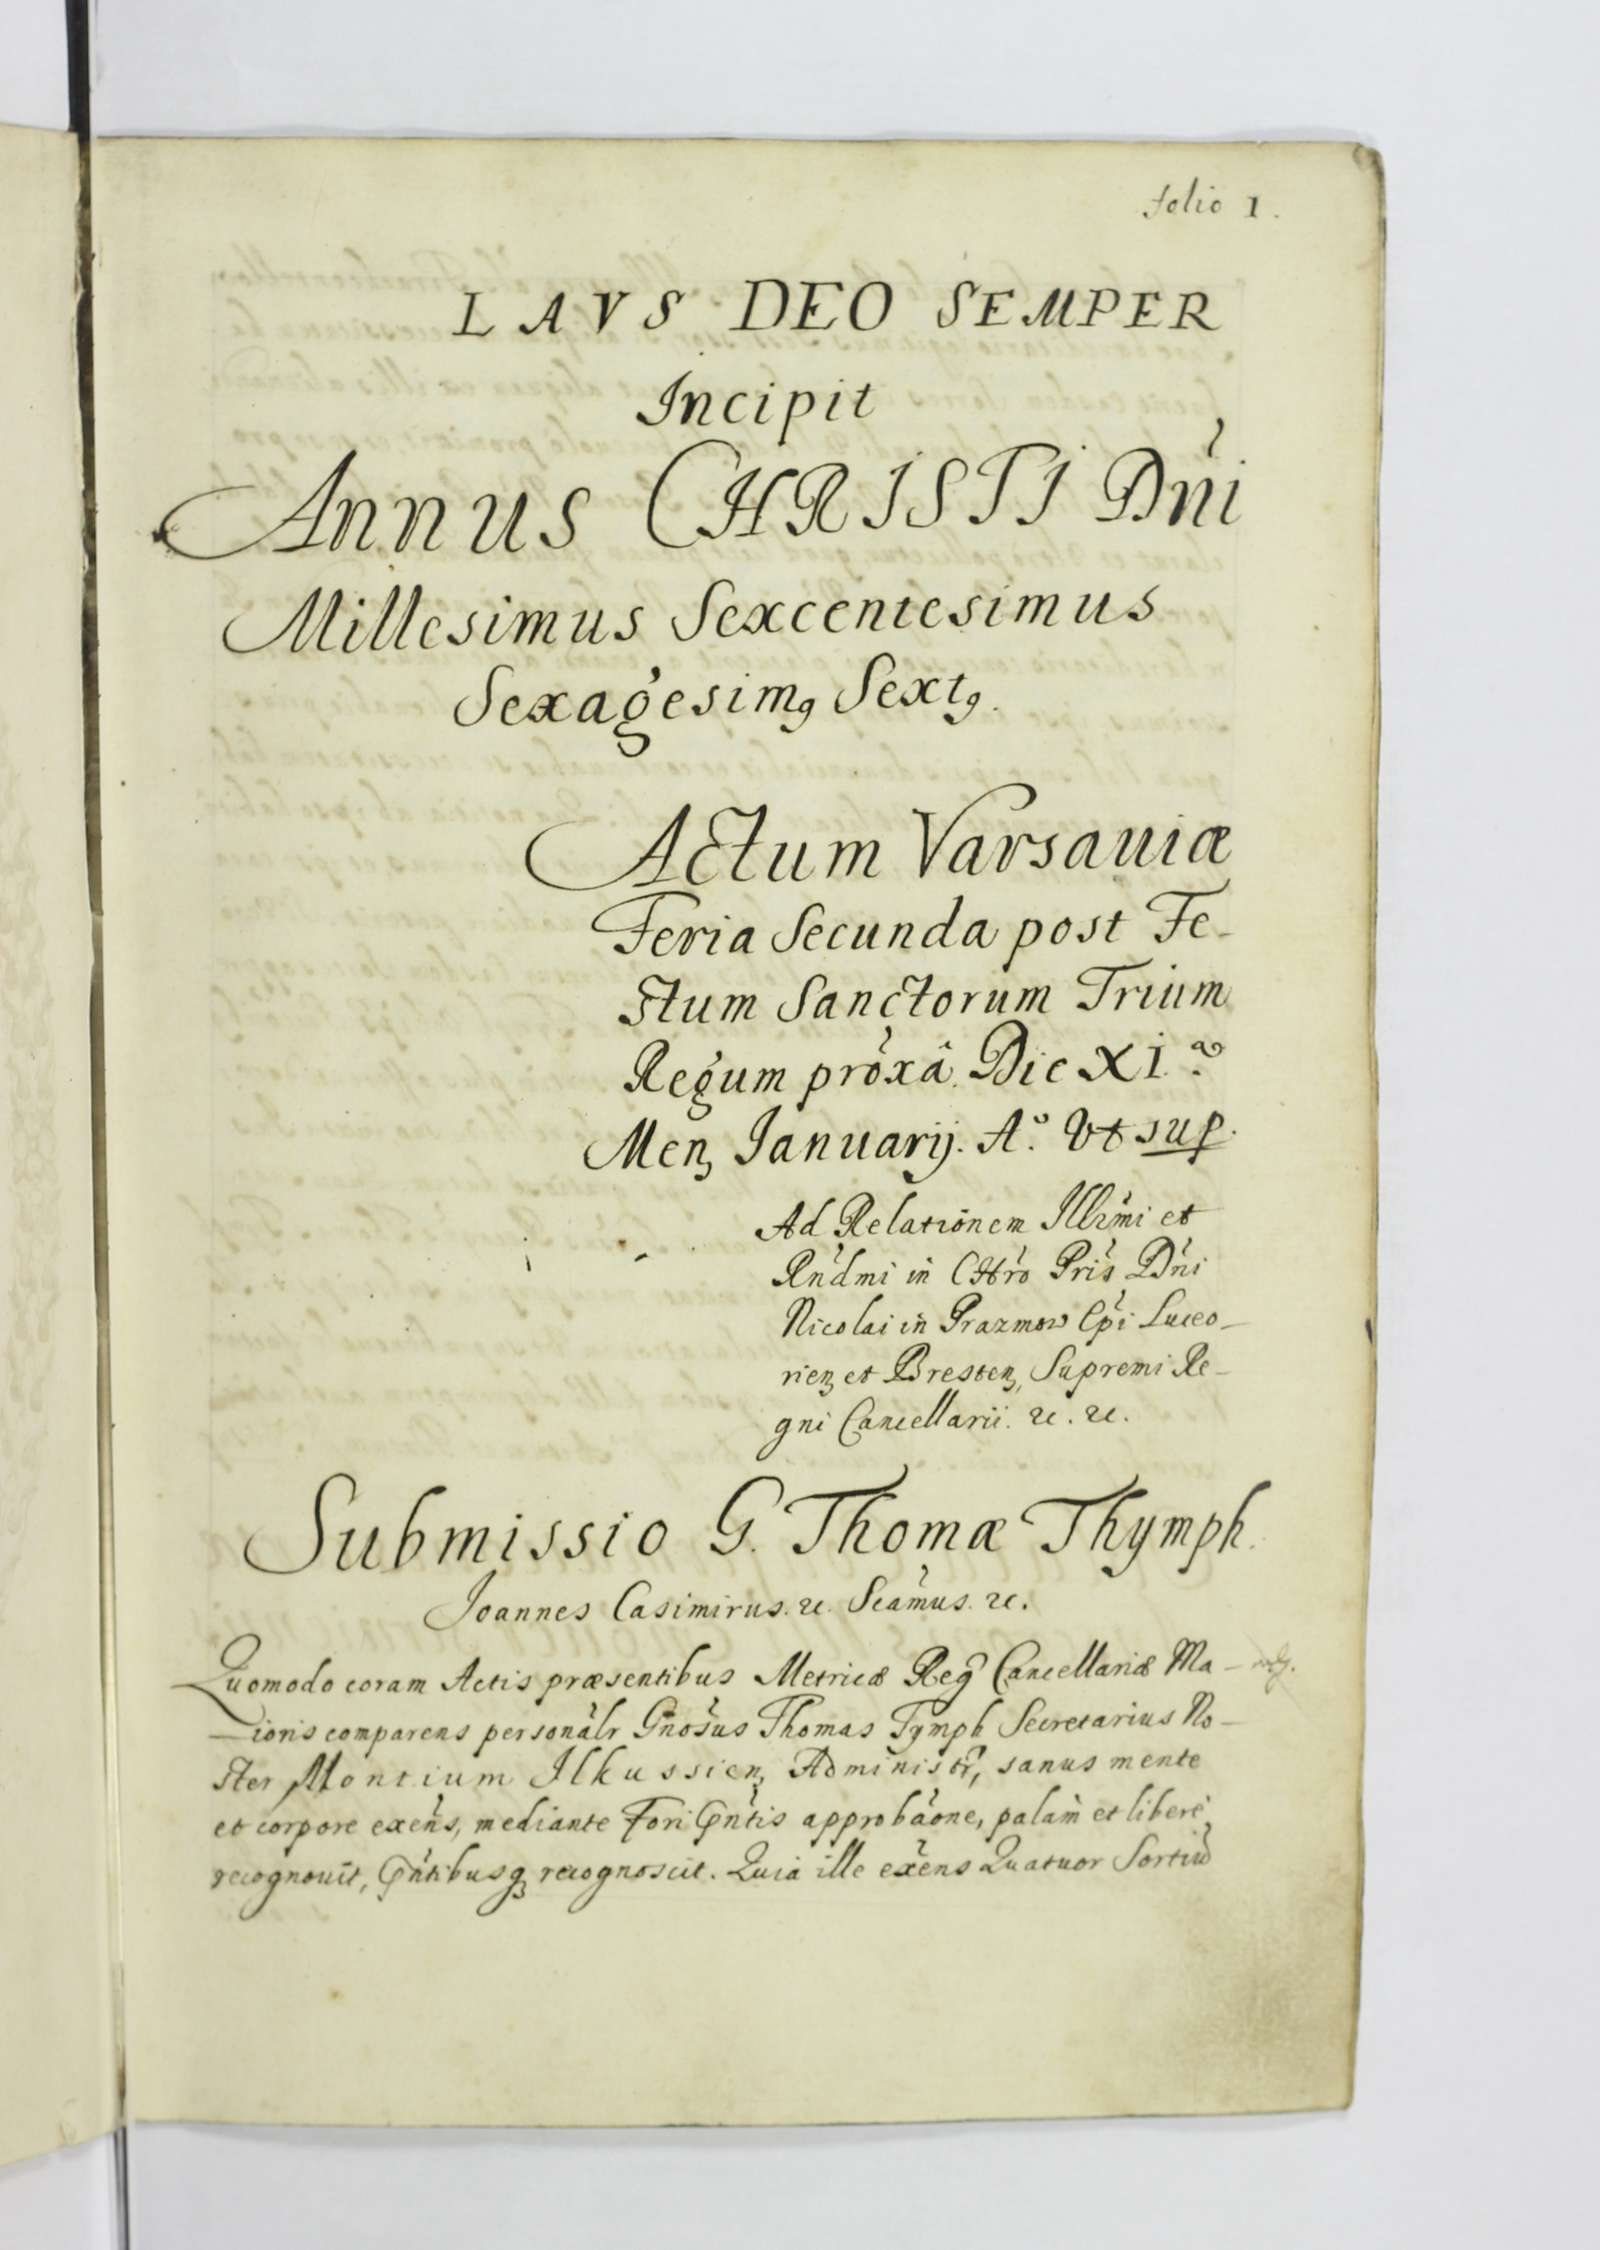 folio 1.
LAVS DEO SEMPER
Incipit
Annus CHRISTI Dni
Millesimus Sexcentesimus
Sexagesimꝰ Sextꝰ.
Actum Varsauiæ
Feria Secunda post Fe-
stum Sanctorum Trium
Regum proxâ. Die XI.ª
Menʒ Ianuarij. A.º Vt sup.
Ad Relationem Illrmi et
Rndmi in CHro Pris Dni
Nicolai in Prazmow Epi Luceo-
rienʒ et Brestenʒ, Supremi Re-
gni Cancellarii. &c. &c.
Submissio G. Thomæ Thymph.
Joannes Casimirus. &c. Scamus. &c.
Quomodo coram Actis præsentibus Metricæ Reg Cancellariæ Ma-
ioris comparens personalr Gnosus Thomas Tymph Secretarius No-
ster Montium Ilkussienʒ Administr, sanus mente
et corpore exens, mediante Fori Pntis approbaone, palam et libere
recognouit, Pntibusqʒ recognoscit. Quia ille exens Quatuor Sortiu